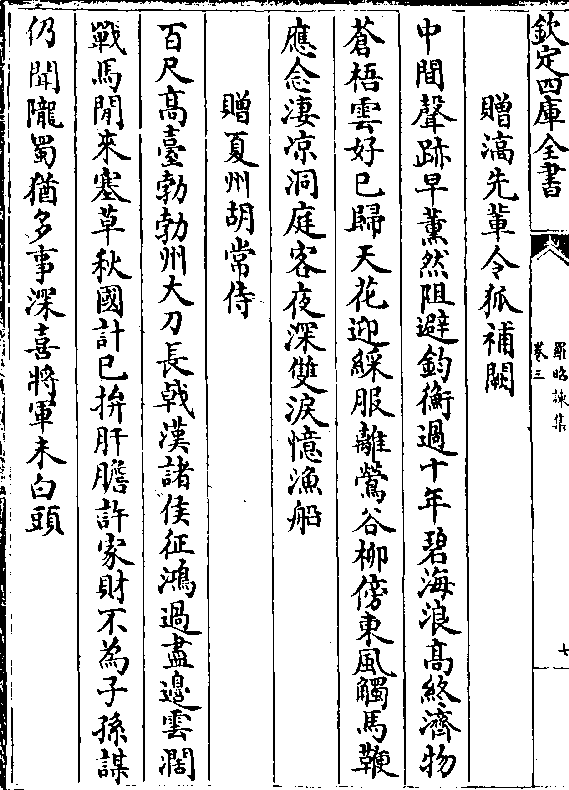 欽定四庫全書
羅昭諫集
卷三
七
贈滈先輩令狐補闕
中間聲跡早薰然阻避鈞衡過十年碧海浪高終濟物
蒼梧雲好已歸天花迎綵服離鶯谷柳傍東風觸馬鞭
應念凄凉洞庭客夜深雙淚憶漁船
贈夏州胡常侍
百尺髙臺勃勃州大刀長戟漢諸侯征鴻過盡邊雲濶
戰馬閒來塞草秋國計已拚肝膽許家財不為子孫謀
仍聞隴蜀猶多事深喜將軍未白頭